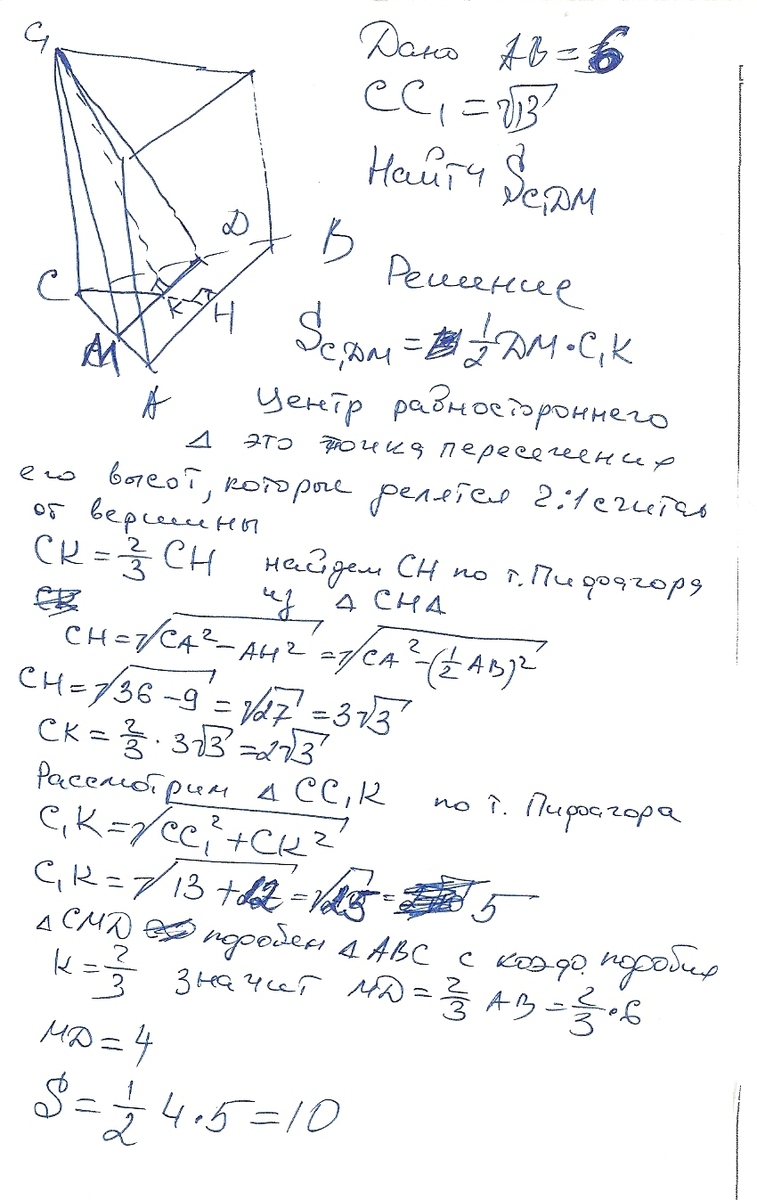 C₁
Дано AB = 6
CC₁ = √13
Найти S C₁DM
D
B
C
K
H
M
A
Решение
S C₁DM = ½ DM · C₁K
Центр равностороннего
Δ это точка пересечения
его высот, которые делятся 2:1 считая
от вершины
CK = 2/3 CH найдем CH по т. Пифагора
из Δ CHA
CH = √(CA² − AH²) = √(CA² − (½ AB)²)
CH = √(36 − 9) = √27 = 3√3
CK = 2/3 · 3√3 = 2√3
Рассмотрим Δ CC₁K по т. Пифагора
C₁K = √(CC₁² + CK²)
C₁K = √(13 + 12) = √25 = 5
Δ CMD подобен Δ ABC с коэф. подобия
k = 2/3 значит MD = 2/3 AB = 2/3 · 6
MD = 4
S = ½ 4 · 5 = 10